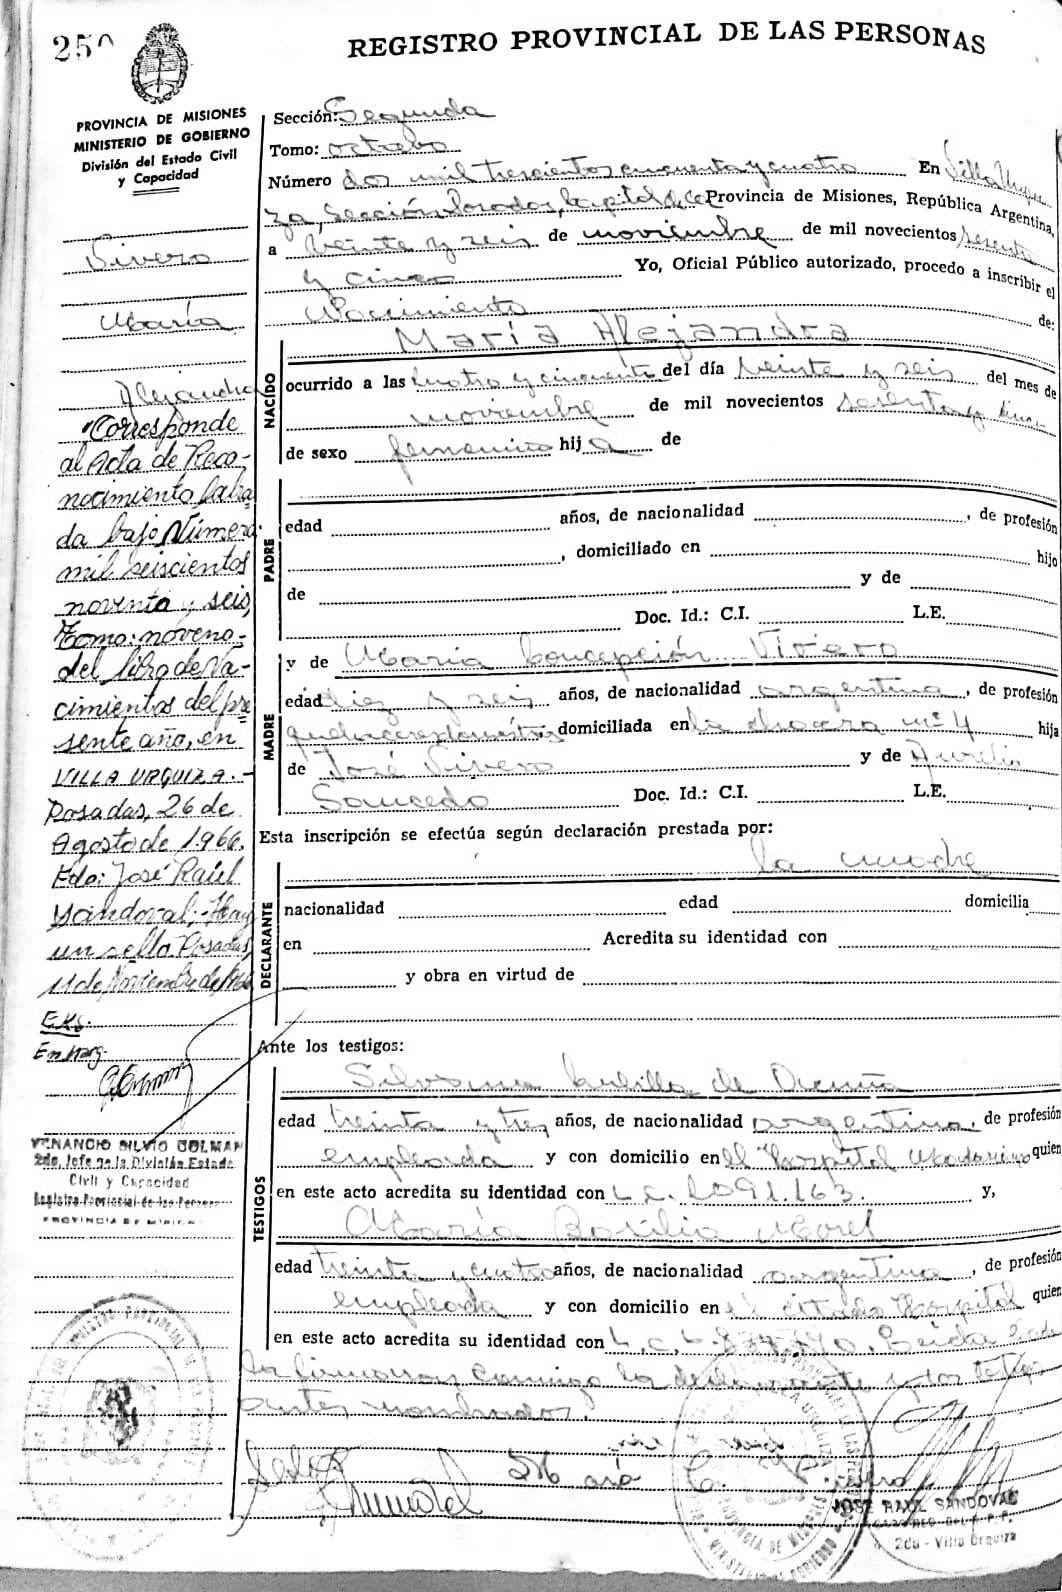 250
REGISTRO PROVINCIAL DE LAS PERSONAS
PROVINCIA DE MISIONES
MINISTERIO DE GOBIERNO
División del Estado Civil
y Capacidad
Sección: Segunda
Tomo: octavo
Número dos mil trescientos cincuenta y cuatro En Villa Urqui
za, Sección Posadas, Capital de la Provincia de Misiones, República Argentina,
a veinte y seis de noviembre de mil novecientos sesenta
y cinco Yo, Oficial Público autorizado, procedo a inscribir el
Nacimiento de:
Vivero
María
Alejandra
"Corresponde
al Acta de Reco-
nocimiento labra
da bajo Número
mil seiscientos
noventa y seis,
Tomo: noveno-
del libro de Na-
cimientos del pre
sente año, en
VILLA URQUIZA.-
Posadas, 26 de
Agosto de 1.966.
Fdo: José Raúl
Sandoval.- Hay
un sello. Posadas,
11 de Noviembre de
VENANCIO SILVIO COLMAN
2do. Jefe de la División Estado
Civil y Capacidad
Registro Provincial de las Personas
PROVINCIA DE MISIONES
NACIDO
María Alejandra
ocurrido a las cuatro y cincuenta del día veinte y seis del mes de
noviembre de mil novecientos sesenta y cinco
de sexo femenino hij a de
PADRE
edad años, de nacionalidad , de profesión
, domiciliado en hijo
de y de
Doc. Id.: C.I. L.E.
MADRE
y de María Concepción Vivero
edad diez y seis años, de nacionalidad argentina, de profesión
quehaceres domésticos domiciliada en la chacra nº 4 hija
de José Vivero y de Aurelia
Saucedo Doc. Id.: C.I. L.E.
Esta inscripción se efectúa según declaración prestada por:
DECLARANTE
la madre
nacionalidad edad domicilia
en Acredita su identidad con
y obra en virtud de
Ante los testigos:
TESTIGOS
Silvana de
edad treinta y tres años, de nacionalidad argentina, de profesión
empleada y con domicilio en el Hospital Madariaga quien
en este acto acredita su identidad con L.C. 2.091.163. y,
María Basilia Morel
edad treinta y cuatro años, de nacionalidad argentina, de profesión
empleada y con domicilio en el citado Hospital quien
en este acto acredita su identidad con L.C. Leída
la firmaron conmigo la declarante y los testigos
antes nombrados.
María C. Vivero
JOSE RAUL SANDOVAL
2da - Villa Urquiza